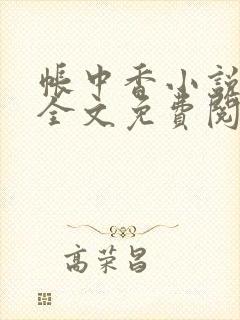 帳中香小說
全文免費閱
高荣昌